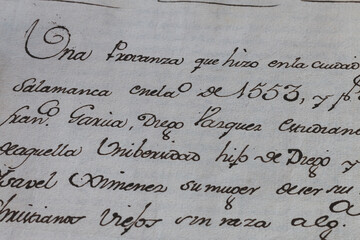 Una Provanza que hizo en la ciudad
Salamanca en el aº de 1553, y
Franº Garcia, Diego Vazquez Estudian
de aquella Unibersidad hijºs de Diego y
Isavel Ximenez su muger de ser su
Christianos viejos sin raza alg.ª